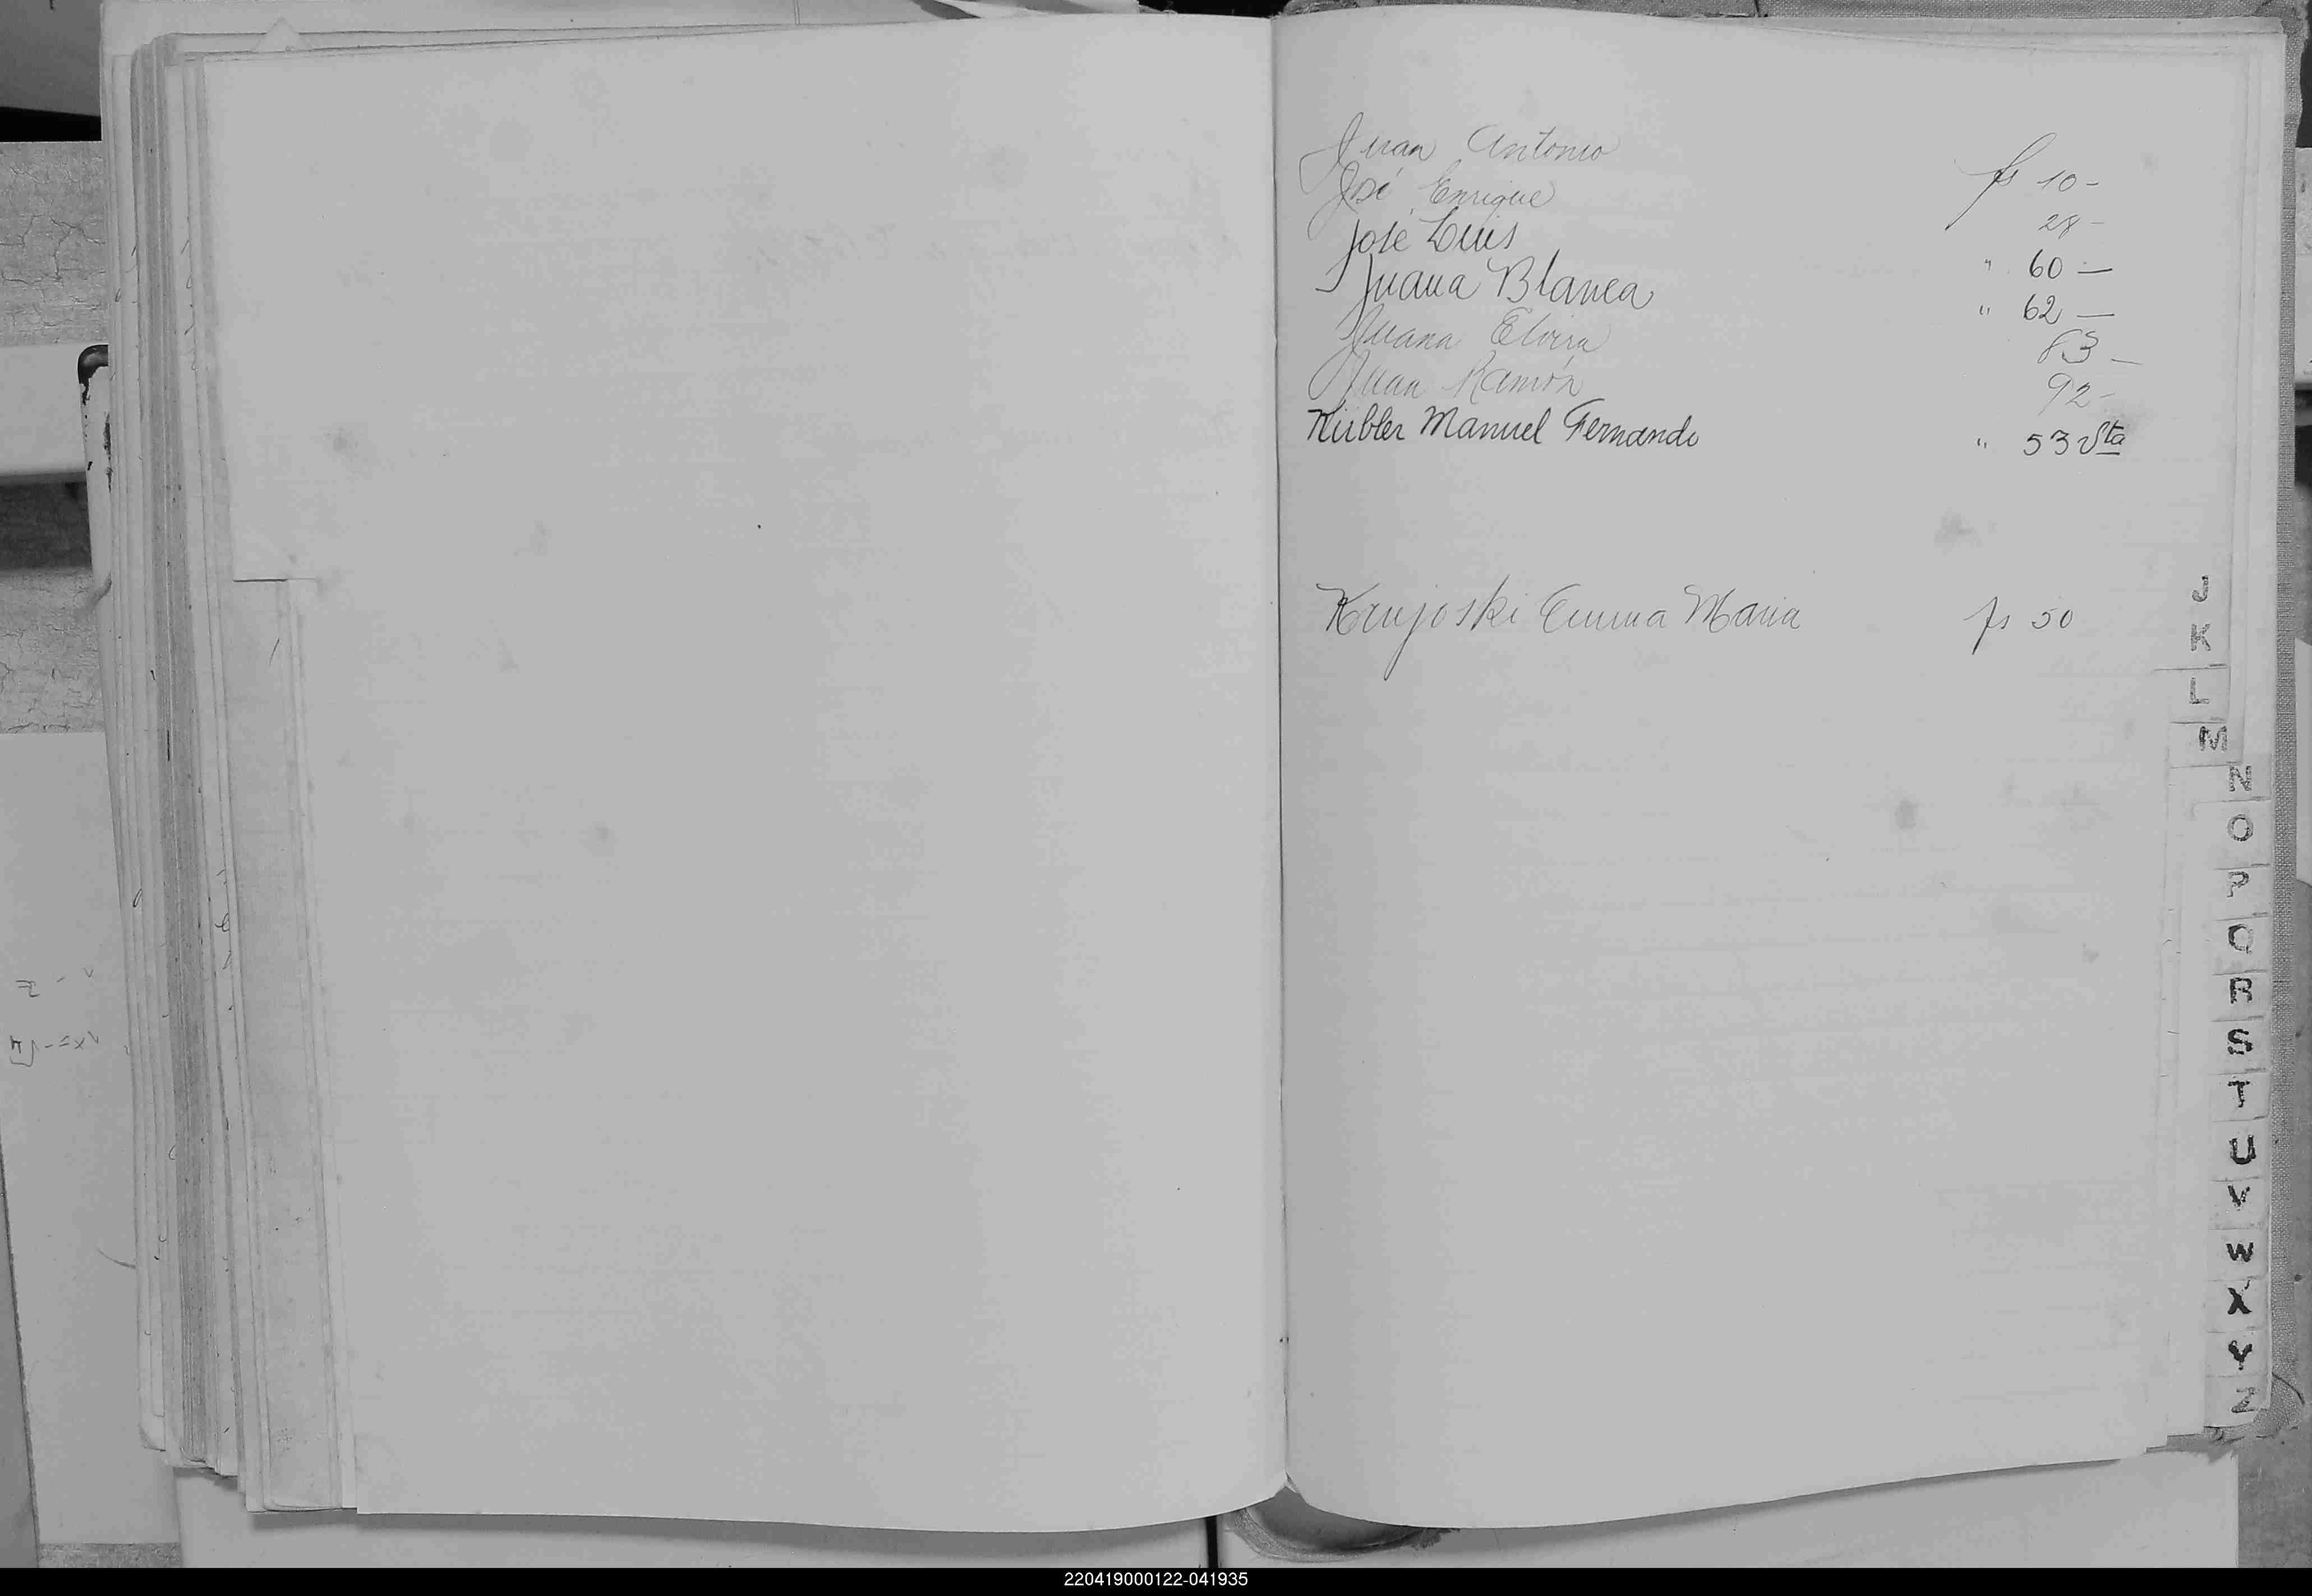 Juan Antonio fs 10-
José Enrique 28-
José Luis " 60—
Juana Blanca " 62—
Juana Elvira 83—
Juan Ramón 92-
Kübler Manuel Fernando " 53 Vta
Krujoski Emma Maria fs 50
J
K
L
M
N
O
P
Q
R
S
T
U
V
W
X
Y
Z
220419000122-041935